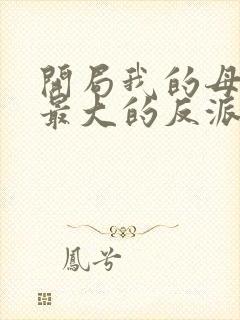 開局我的母
最大的反派
鳳兮